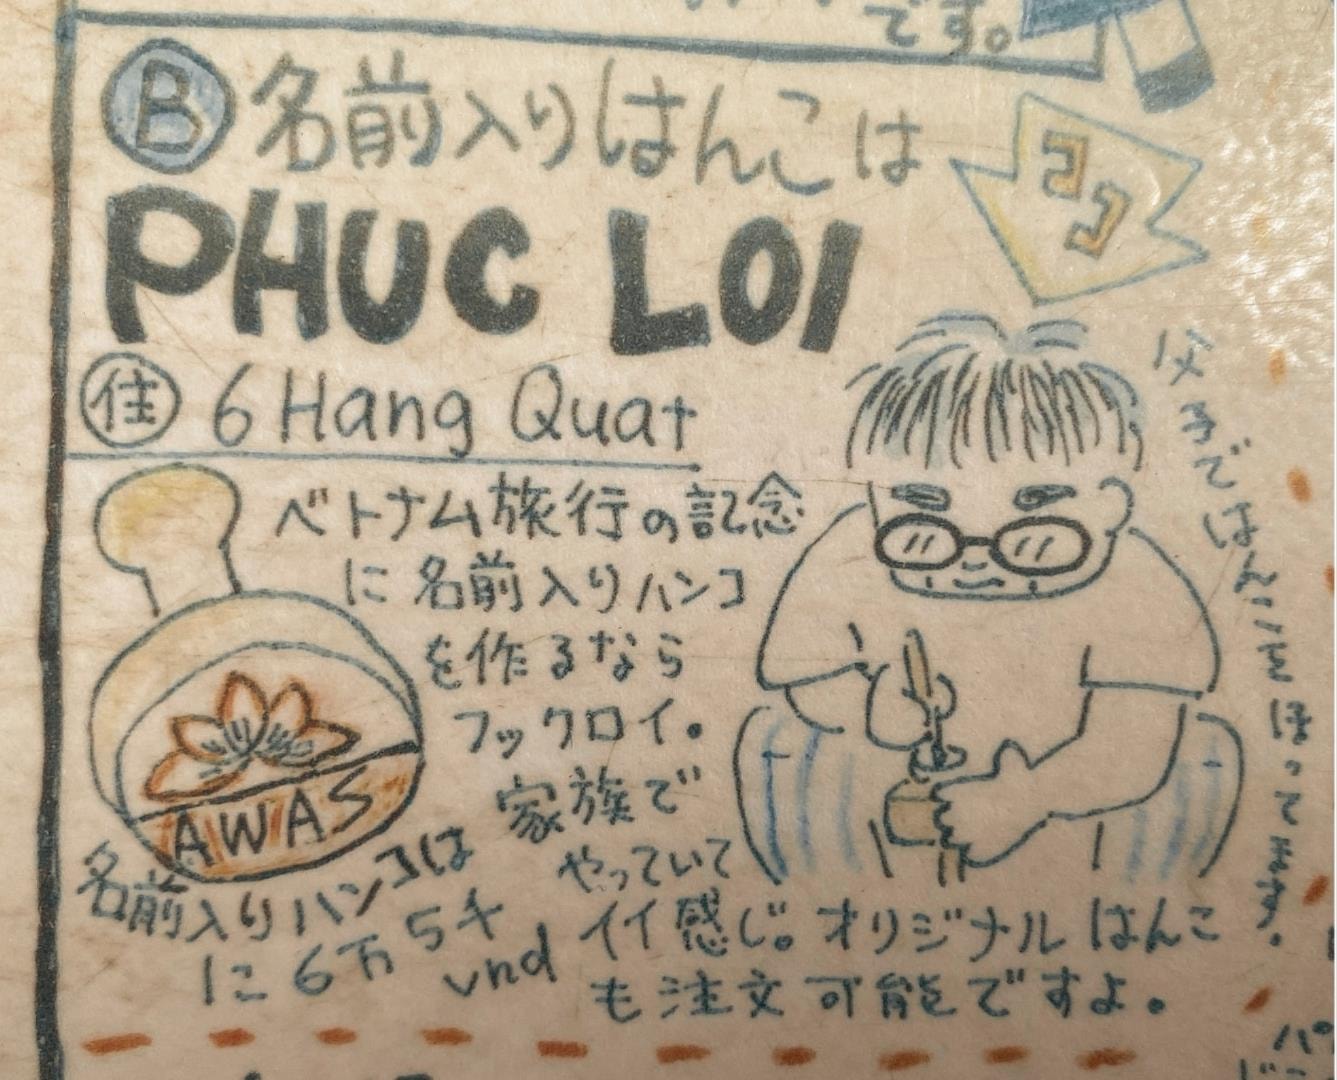 です。
B 名前入りはんこは
ココ
PHUC LOI
住 6 Hang Quat
ベトナム旅行の記念
に名前入りハンコ
を作るなら
フックロイ。
家族で
やっていて
イイ感じ。オリジナルはんこ
も注文可能ですよ。
AWAS
名前入りハンコは
に6万5千
vnd
父子ではんこをほってます。